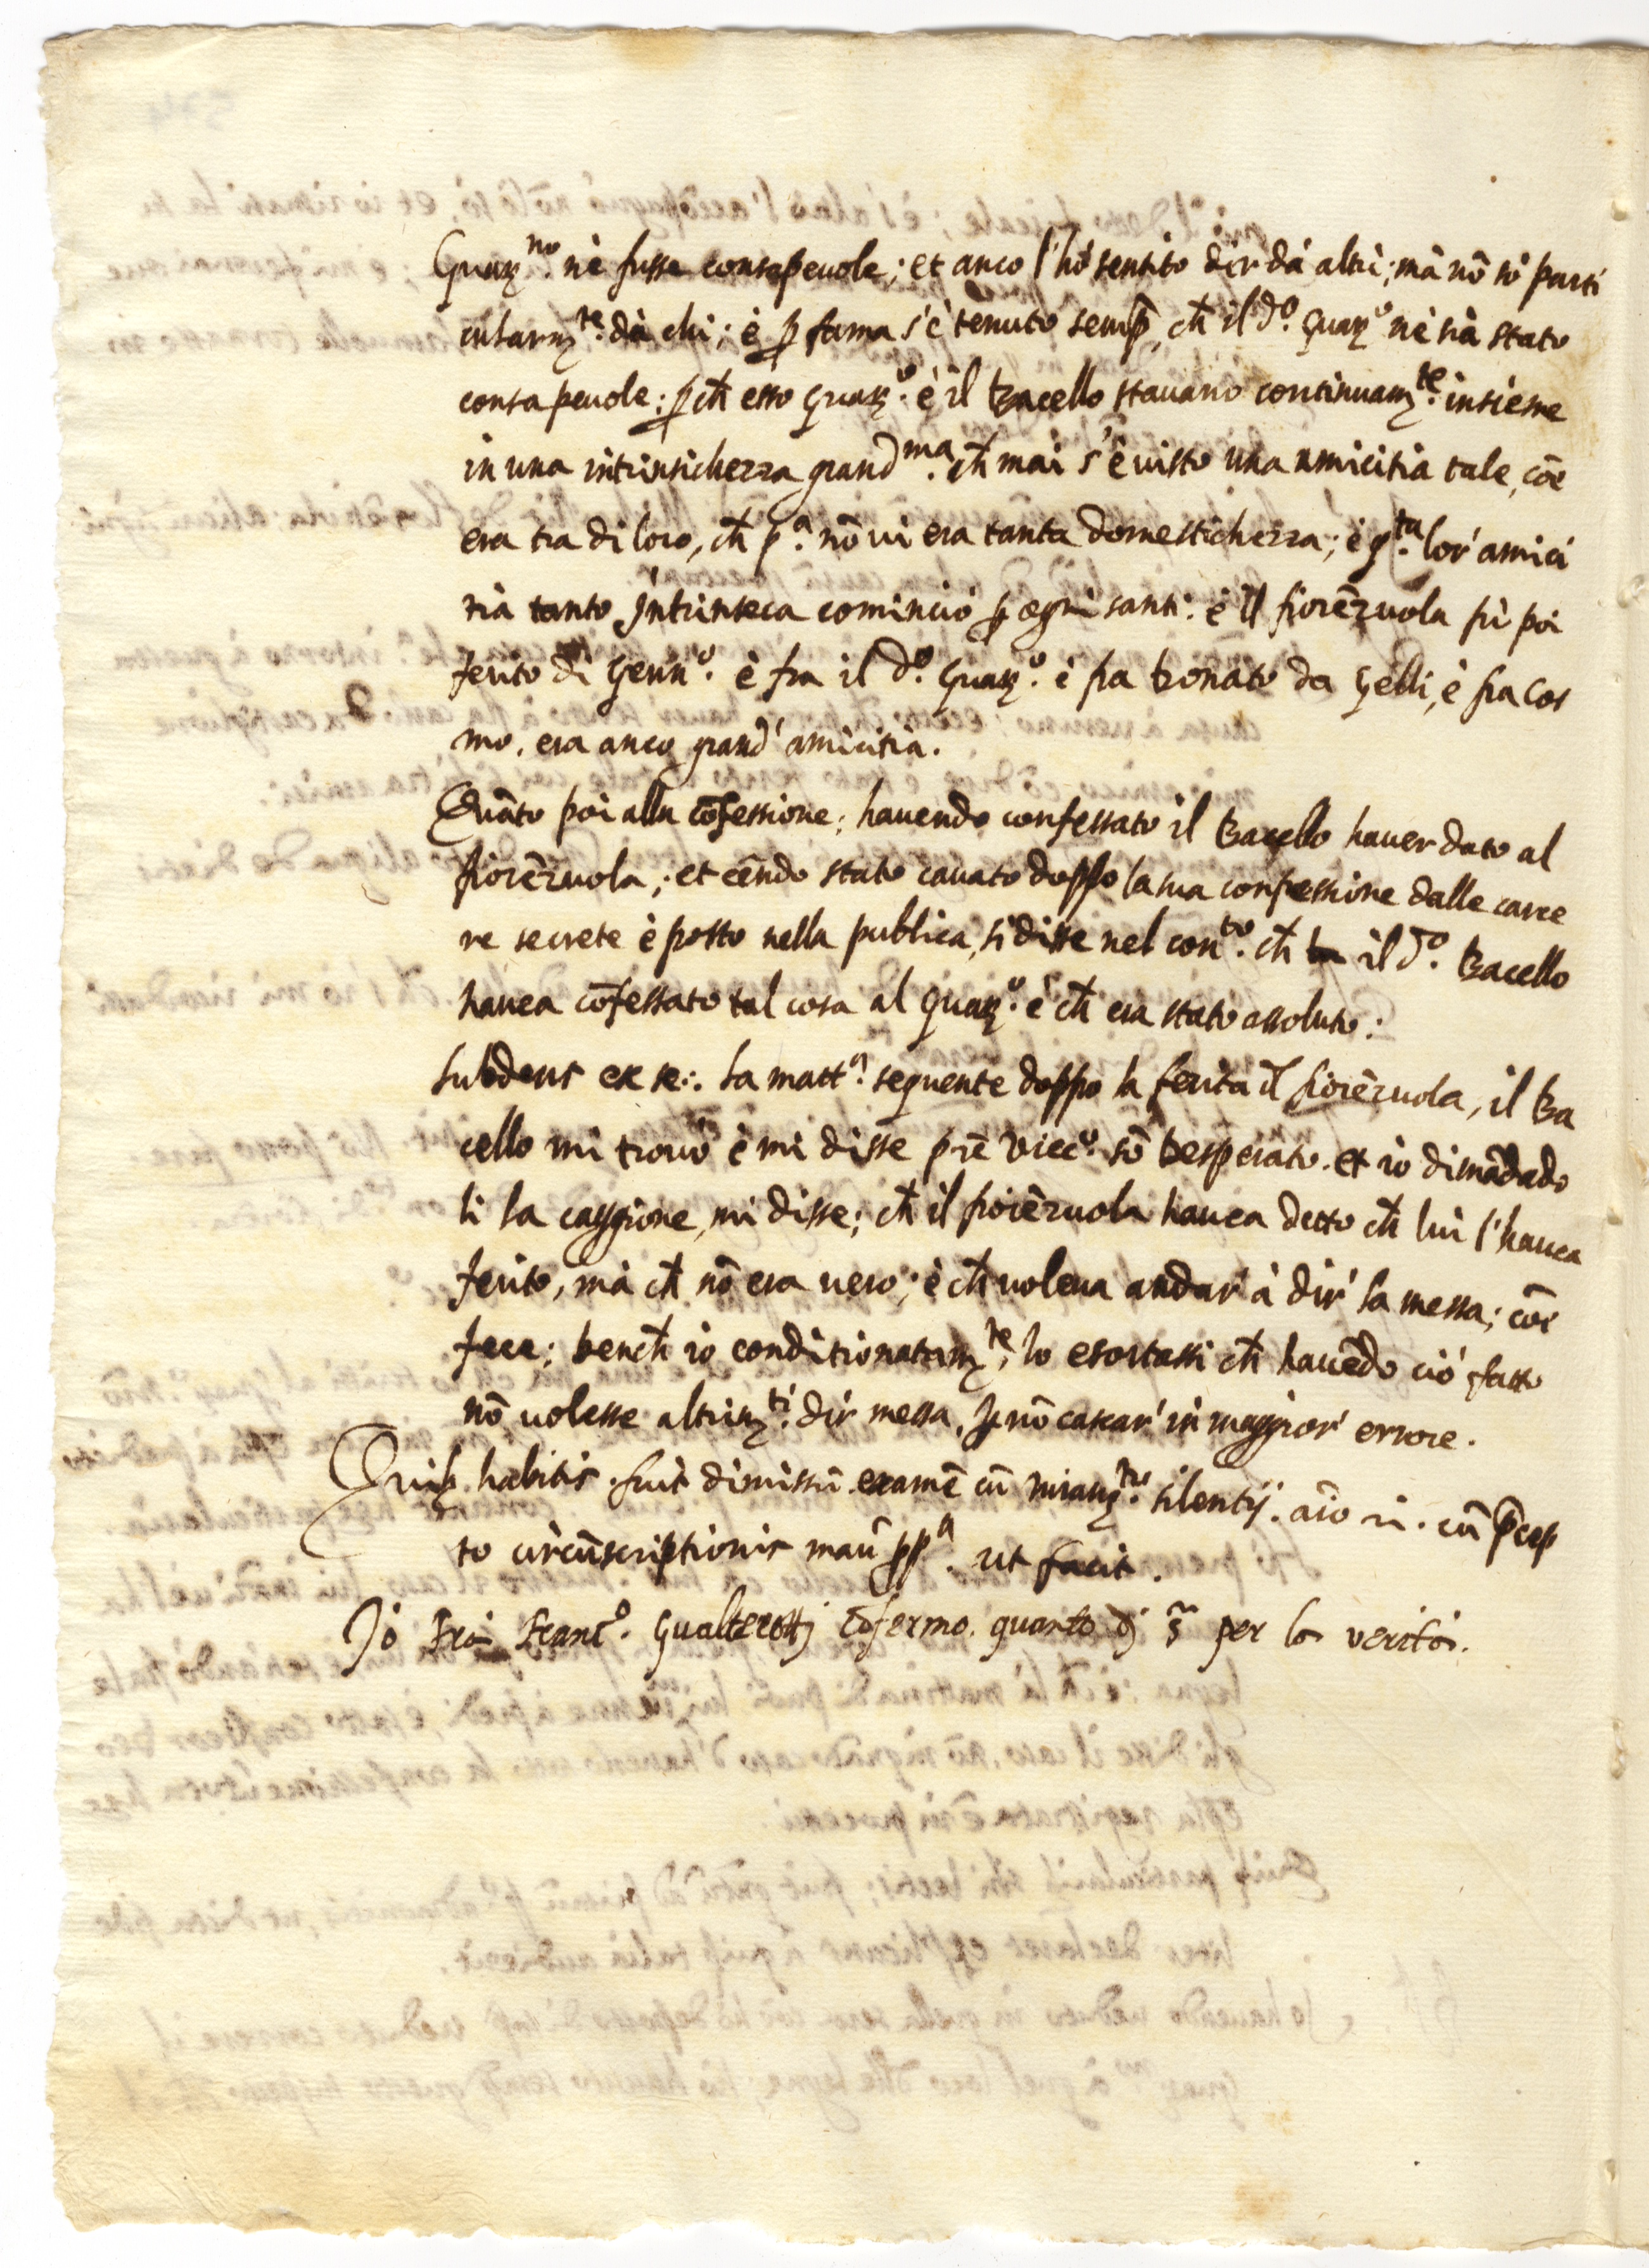 Guarno. nè fusse consapeuole; et anco l'hò sentito dir dà altri; mà nõ sò parti
cularmte. dà chi; è ꝑ fama s'è tenuto semp̃, ch̃ il do. Guaro nè sià stato
consapeuole: ꝑch̃ esso Guaro. è il Bacello stauano continuamte. insieme
in una intrinsichezza grandma. ch̃ mai s'è uisto una amicitia tale, cõe
era tra di loro, ch̃ pa. nõ ui era tanta domestichezza; è qta. lor' amici
tià tanto Intrinseca cominciò ꝑ ogni santi. è il fiorẽzuola fù poi
ferito di Gennо. è fra il do. Guaro. è fra Bonato da Gelli, è fra Cos
mo. era anco grand' amicitia.
Quãto poi alla cõfessione; hauendo confessato il Bacello hauer dato al
fiorẽzuola; et eẽndo stato cauato doppo la sua confessione dalle carce
re secrete è posto nella publica, si disse nel conto. ch̃ il do. Bacello
hauea cõfessato tal cosa al Guaro. è ch̃ era stato assoluto:
Subdens ex se:. La matta. seguente doppo la ferita il fiorẽzuola, il Ba
cello mi trouò è mi disse prẽ Viecо. sõ desperato. et io dimãdado
li la caggione, mi disse; ch̃ il fiorẽzuola hauea detto ch̃ lui l'hauea
ferito, mà ch̃ nõ era uero; è ch̃ uoleua andar' à dir' la messa; cõe
fece; bench̃ io conditionatamte, lo esortassi ch̃ hauẽdo ciò fatto
nõ uolesse altrimti. dir messa, ꝑ nõ cascar' in maggior' errore.
Quibꝫ habitis fuit dimissũ examẽ cũ iuramto. silentij. cũ p̃cep
to circũscriptionis ut facit.
Io Frà Francо. Gualterottj cõfermo. quanto dj s̃ per la verità.